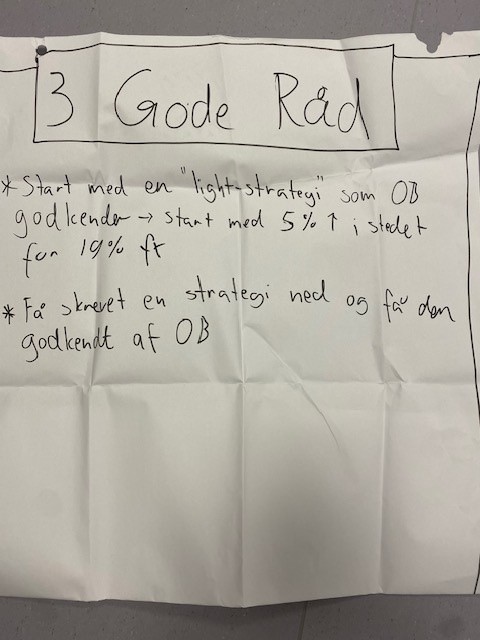 3 Gode Råd
* Start med en "light-strategi" som OB
godkender → start med 5% ↑ i stedet
for 19% ft
* Få skrevet en strategi ned og få den
godkendt af OB